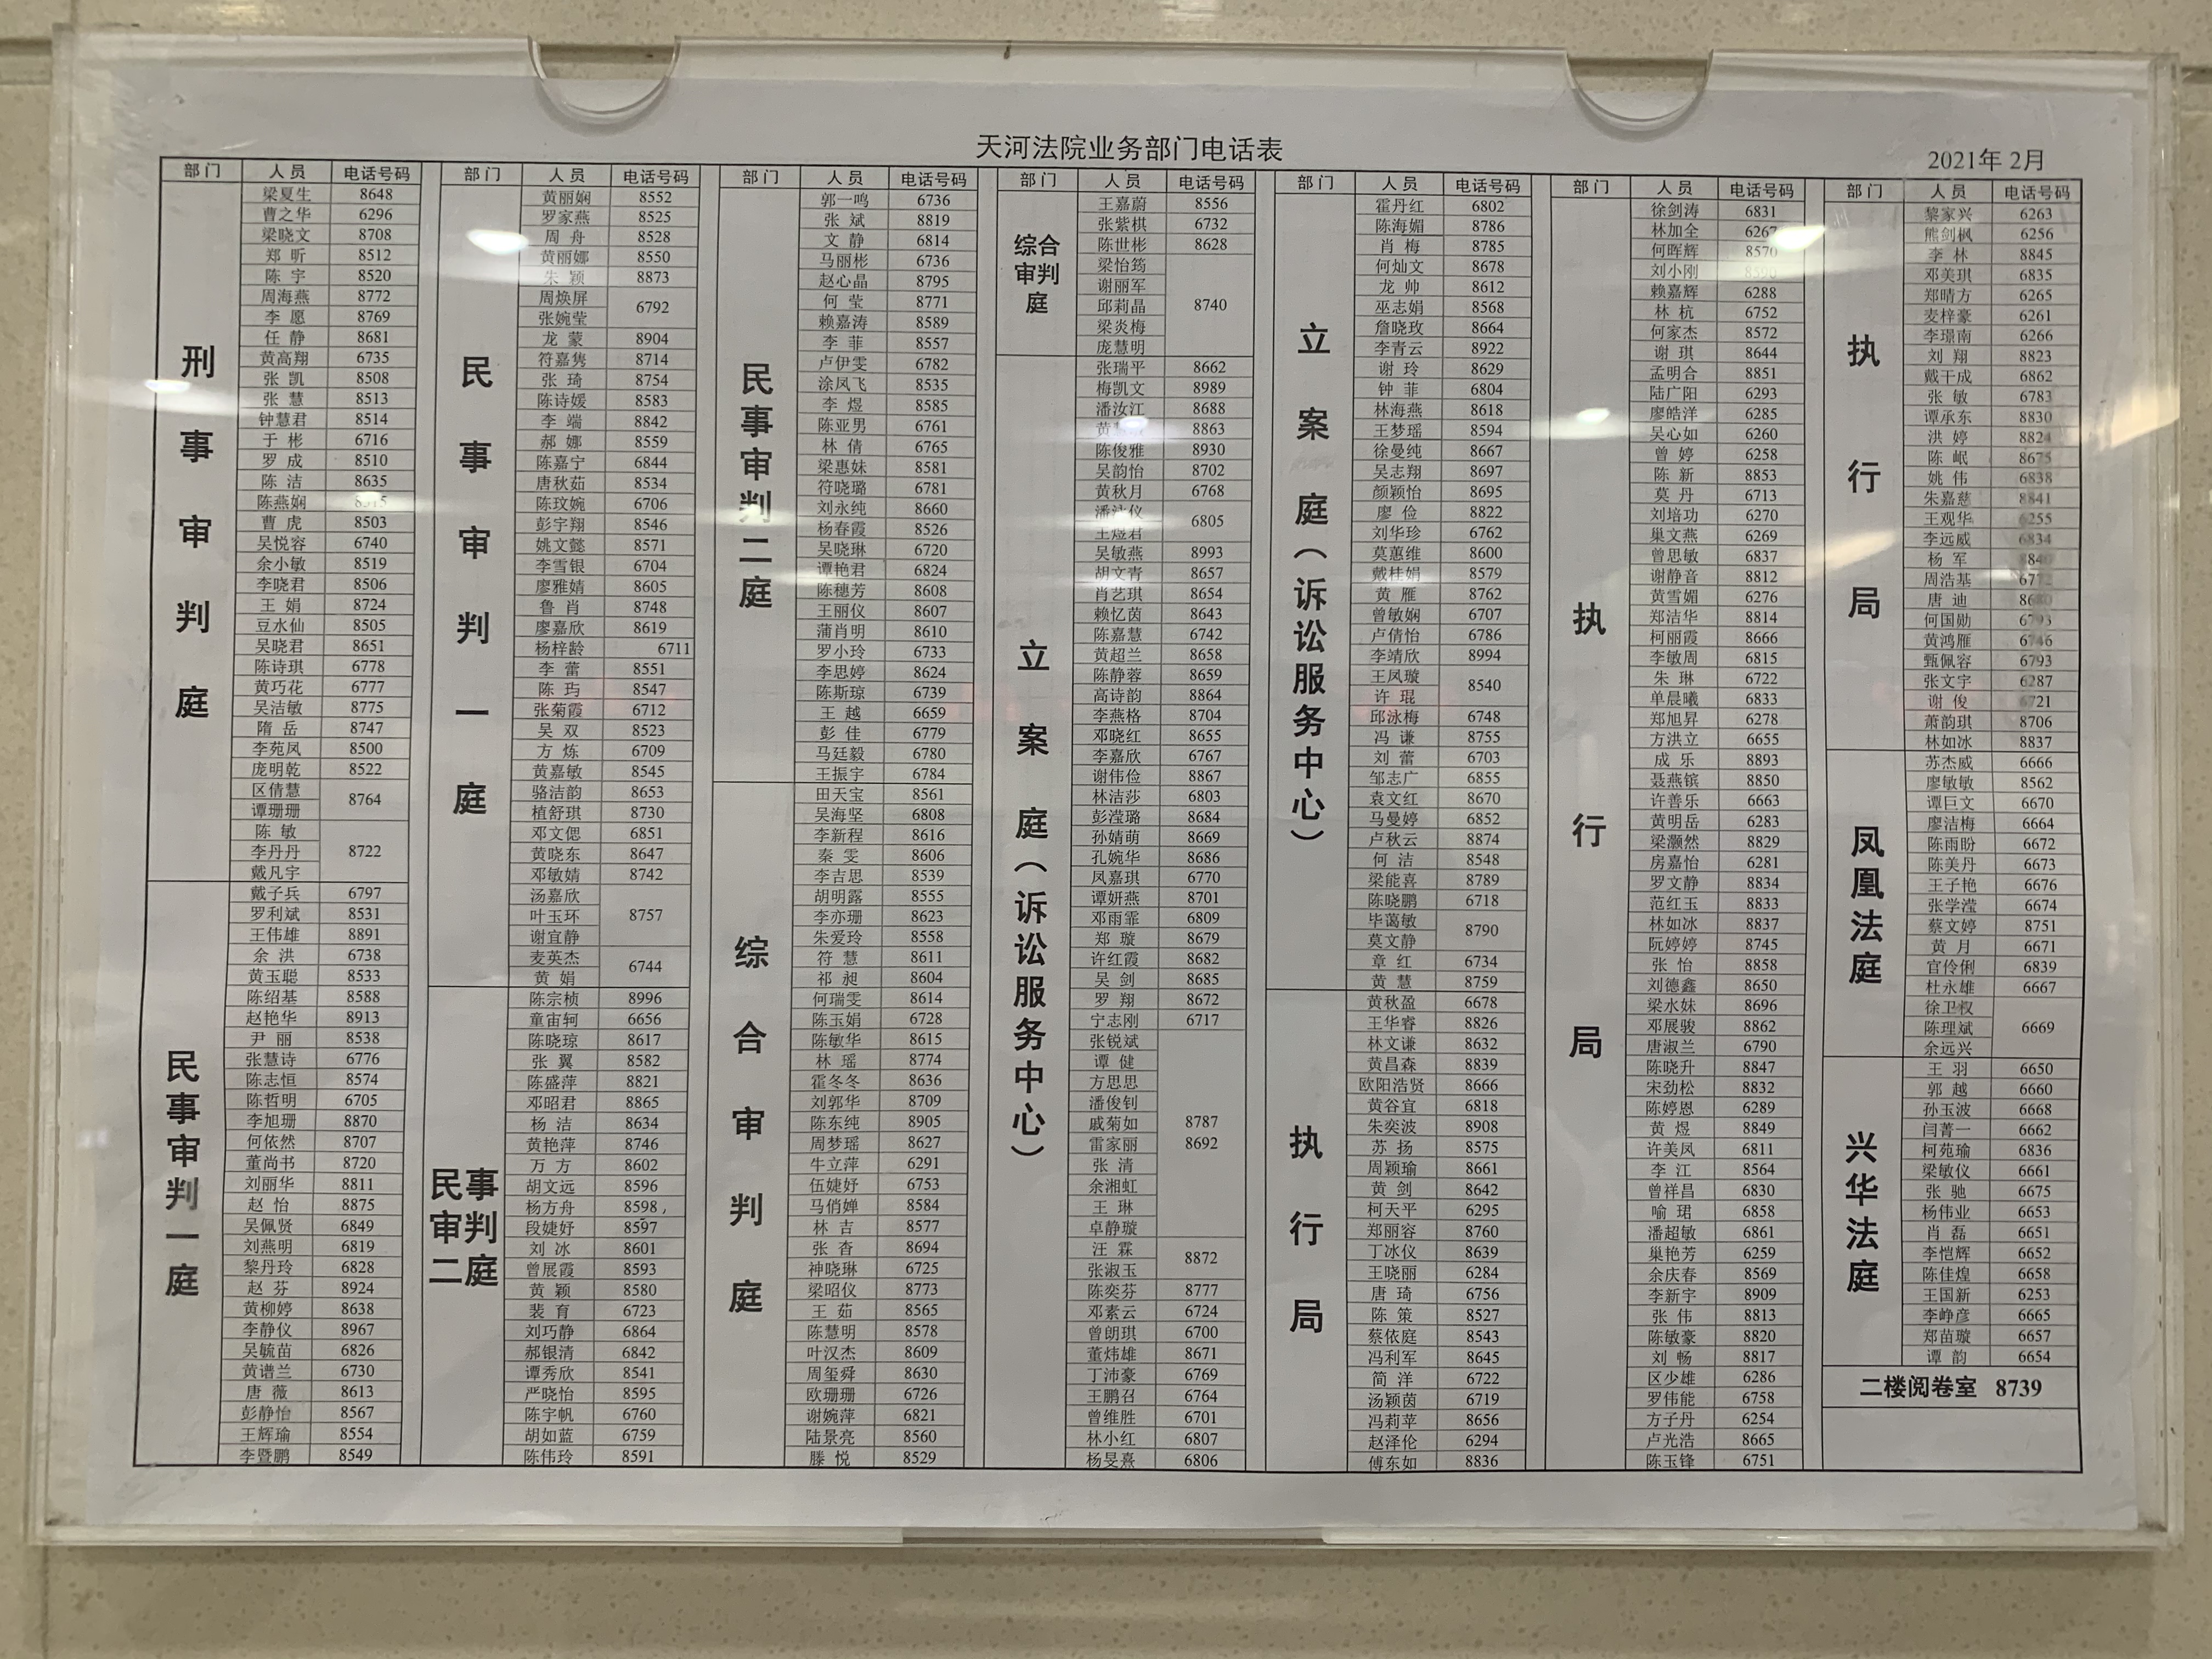 天河法院业务部门电话表
2021年 2月
部门 人员 电话号码
刑事审判庭
梁夏生 8648
曹之华 6296
梁晓文 8708
郑昕 8512
陈宇 8520
周海燕 8772
李愿 8769
任静 8681
黄高翔 6735
张凯 8508
张慧 8513
钟慧君 8514
于彬 6716
罗成 8510
陈洁 8635
陈燕娴
曹虎 8503
吴悦容 6740
余小敏 8519
李晓君 8506
王娟 8724
豆水仙 8505
吴晓君 8651
陈诗琪 6778
黄巧花 6777
吴洁敏 8775
隋岳 8747
李苑凤 8500
庞明乾 8522
区倩慧
谭珊珊 8764
陈敏
李丹丹 8722
戴凡宇
民事审判一庭
戴子兵 6797
罗利斌 8531
王伟雄 8891
余洪 6738
黄玉聪 8533
陈绍基 8588
赵艳华 8913
尹丽 8538
张慧诗 6776
陈志恒 8574
陈哲明 6705
李旭珊 8870
何依然 8707
董尚书 8720
刘丽华 8811
赵怡 8875
吴佩贤 6849
刘燕明 6819
黎丹玲 6828
赵芬 8924
黄柳婷 8638
李静仪 8967
吴毓苗 6826
黄谱兰 6730
唐薇 8613
彭静怡 8567
王辉瑜 8554
李暨鹏 8549
部门 人员 电话号码
民事审判一庭
黄丽娴 8552
罗家燕 8525
周舟 8528
黄丽娜 8550
朱颖 8873
周焕屏
张婉莹 6792
龙蒙 8904
符嘉隽 8714
张琦 8754
陈诗媛 8583
李端 8842
郝娜 8559
陈嘉宁 6844
唐秋茹 8534
陈玟婉 6706
彭宇翔 8546
姚文懿 8571
李雪银 6704
廖雅婧 8605
鲁肖 8748
廖嘉欣 8619
杨梓龄 6711
李蕾 8551
陈玙 8547
张菊霞 6712
吴双 8523
方炼 6709
黄嘉敏 8545
骆洁韵 8653
植舒琪 8730
邓文偲 6851
黄晓东 8647
邓敏婧 8742
汤嘉欣
叶玉环 8757
谢宜静
麦英杰
黄娟 6744
民事审判二庭
陈宗桢 8996
童宙轲 6656
陈晓琼 8617
张翼 8582
陈盛萍 8821
邓昭君 8865
杨洁 8634
黄艳萍 8746
万方 8602
胡文远 8596
杨方舟 8598
段婕妤 8597
刘冰 8601
曾展霞 8593
黄颖 8580
裴育 6723
刘巧静 6864
郝银清 6842
谭秀欣 8541
严晓怡 8595
陈宇帆 6760
胡如蓝 6759
陈伟玲 8591
部门 人员 电话号码
民事审判二庭
郭一鸣 6736
张斌 8819
文静 6814
马丽彬 6736
赵心晶 8795
何莹 8771
赖嘉涛 8589
李菲 8557
卢伊雯 6782
涂凤飞 8535
李煜 8585
陈亚男 6761
林倩 6765
梁惠妹 8581
符晓璐 6781
刘永纯 8660
杨春霞 8526
吴晓琳 6720
谭艳君 6824
陈穗芳 8608
王丽仪 8607
蒲肖明 8610
罗小玲 6733
李思婷 8624
陈斯琼 6739
王越 6659
彭佳 6779
马廷毅 6780
王振宇 6784
综合审判庭
田天宝 8561
吴海坚 6808
李新程 8616
秦雯 8606
李吉思 8539
胡明露 8555
李亦珊 8623
朱爱玲 8558
符慧 8611
祁昶 8604
何瑞雯 8614
陈玉娟 6728
陈敏华 8615
林瑶 8774
霍冬冬 8636
刘郭华 8709
陈东纯 8905
周梦瑶 8627
牛立萍 6291
伍婕妤 6753
马俏婵 8584
林吉 8577
张杳 8694
神晓琳 6725
梁昭仪 8773
王茹 8565
陈慧明 8578
叶汉杰 8609
周玺舜 8630
欧珊珊 6726
谢婉萍 6821
陆景亮 8560
滕悦 8529
部门 人员 电话号码
综合审判庭
王嘉蔚 8556
张紫棋 6732
陈世彬 8628
梁怡筠
谢丽军
邱莉晶 8740
梁炎梅
庞慧明
立案庭（诉讼服务中心）
张瑞平 8662
梅凯文 8989
潘汝江 8688
黄 8863
陈俊雅 8930
吴韵怡 8702
黄秋月 6768
潘泳仪
王煜君 6805
吴敏燕 8993
胡文青 8657
肖艺琪 8654
赖忆茵 8643
陈嘉慧 6742
黄超兰 8658
陈静蓉 8659
高诗韵 8864
李燕格 8704
邓晓红 8655
李嘉欣 6767
谢伟俭 8867
林洁莎 6803
彭滢璐 8684
孙婧萌 8669
孔婉华 8686
凤嘉琪 6770
谭妍燕 8701
邓雨霏 6809
郑璇 8679
许红霞 8682
吴剑 8685
罗翔 8672
宁志刚 6717
张锐斌
谭健
方思思
潘俊钊
戚菊如 8787
雷家丽 8692
张清
余湘虹
王琳
卓静璇
汪霖
张淑玉 8872
陈奕芬 8777
邓素云 6724
曾朗琪 6700
董炜雄 8671
丁沛豪 6769
王鹏召 6764
曾维胜 6701
林小红 6807
杨旻熹 6806
部门 人员 电话号码
立案庭（诉讼服务中心）
霍丹红 6802
陈海媚 8786
肖梅 8785
何灿文 8678
龙帅 8612
巫志娟 8568
詹晓玫 8664
李青云 8922
谢玲 8629
钟菲 6804
林海燕 8618
王梦瑶 8594
徐曼纯 8667
吴志翔 8697
颜颖怡 8695
廖俭 8822
刘华珍 6762
莫蕙维 8600
戴桂娟 8579
黄雁 8762
曾敏娴 6707
卢倩怡 6786
李靖欣 8994
王凤璇
许琨 8540
邱泳梅 6748
冯谦 8755
刘蕾 6703
邹志广 6855
袁文红 8670
马曼婷 6852
卢秋云 8874
何洁 8548
梁能喜 8789
陈晓鹏 6718
毕蔼敏
莫文静 8790
章红 6734
黄慧 8759
执行局
黄秋盈 6678
王华睿 8826
林文谦 8632
黄昌森 8839
欧阳浩贤 8666
黄谷宜 6818
朱奕波 8908
苏扬 8575
周颖瑜 8661
黄剑 8642
柯天平 6295
郑丽容 8760
丁冰仪 8639
王晓丽 6284
唐琦 6756
陈策 8527
蔡依庭 8543
冯利军 8645
简洋 6722
汤颖茵 6719
冯莉苹 8656
赵泽伦 6294
傅东如 8836
部门 人员 电话号码
执行局
徐剑涛 6831
林加全 6267
何晖辉 8570
刘小刚
赖嘉辉 6288
林杭 6752
何家杰 8572
谢琪 8644
孟明合 8851
陆广阳 6293
廖皓洋 6285
吴心如 6260
曾婷 6258
陈新 8853
莫丹 6713
刘培功 6270
巢文燕 6269
曾思敏 6837
谢静音 8812
黄雪媚 6276
郑洁华 8814
柯丽霞 8666
李敏周 6815
朱琳 6722
单晨曦 6833
郑旭昇 6278
方洪立 6655
成乐 8893
聂燕镔 8850
许善乐 6663
黄明岳 6283
梁灏然 8829
房嘉怡 6281
罗文静 8834
范红玉 8833
林如冰 8837
阮婷婷 8745
张怡 8858
刘德鑫 8650
梁水妹 8696
邓展骏 8862
唐淑兰 6790
陈晓升 8847
宋劲松 8832
陈婷恩 6289
黄煜 8849
许美凤 6811
李江 8564
曾祥昌 6830
喻珺 6858
潘超敏 6861
巢艳芳 6259
余庆春 8569
李新宇 8909
张伟 8813
陈敏豪 8820
刘畅 8817
区少雄 6286
罗伟能 6758
方子丹 6254
卢光浩 8665
陈玉锋 6751
部门 人员 电话号码
执行局
黎家兴 6263
熊剑枫 6256
李林 8845
邓美琪 6835
郑晴方 6265
麦梓豪 6261
李璟南 6266
刘翔 8823
戴干成 6862
张敏 6783
谭承东 8830
洪婷 8824
陈岷 8675
姚伟 6838
朱嘉慈 8841
王观华 6255
李远威 6834
杨军 8840
周浩基
唐迪
何国勋 6793
黄鸿雁 6746
甄佩容 6793
张文宇 6287
谢俊 6721
萧韵琪 8706
林如冰 8837
凤凰法庭
苏杰威 6666
廖敏敏 8562
谭巨文 6670
廖洁梅 6664
陈雨盼 6672
陈美丹 6673
王子艳 6676
张学滢 6674
蔡文婷 8751
黄月 6671
官伶俐 6839
杜永雄 6667
徐卫权
陈理斌 6669
余远兴
兴华法庭
王羽 6650
郭越 6660
孙玉波 6668
闫菁一 6662
柯苑瑜 6836
梁敏仪 6661
张驰 6675
杨伟业 6653
肖磊 6651
李恺辉 6652
陈佳煌 6658
王国新 6253
李峥彦 6665
郑苗璇 6657
谭韵 6654
二楼阅卷室 8739